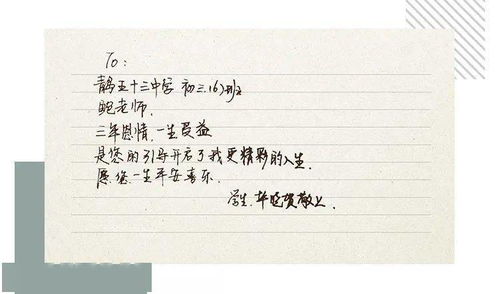 To:
青岛五十三中学 初三.(6)班
鲍老师.
三年恩情.一生受益
是您的引导开启了我更精彩的人生.
愿您.一生平安喜乐.
学生. 敬上.